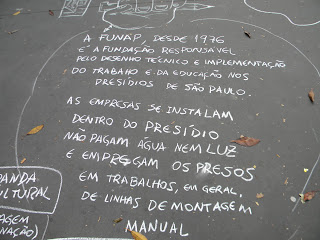 A FUNAP, DESDE 1976
E' A FUNDAÇÃO RESPONSÁVEL
PELO DESENHO TÉCNICO E IMPLEMENTAÇÃO
DO TRABALHO E DA EDUCAÇÃO NOS
PRESÍDIOS DE SÃO PAULO.
AS EMPRESAS SE INSTALAM
DENTRO DO PRESÍDIO
NÃO PAGAM ÁGUA NEM LUZ
E EMPREGAM OS PRESOS
EM TRABALHOS, EM GERAL,
DE LINHAS DE MONTAGEM
MANUAL
PANDA
CULTURAL